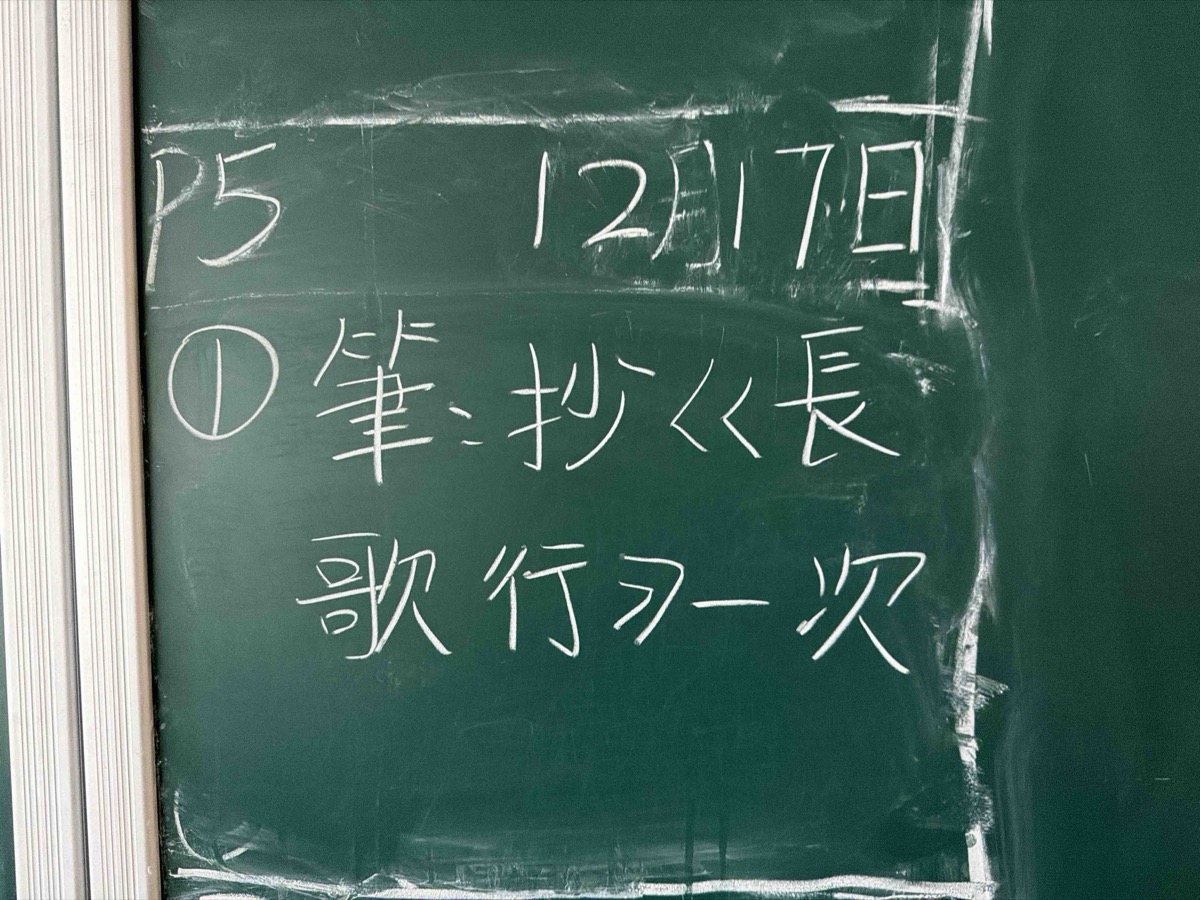 P5 12月17日
① 筆:抄《長
歌行》一次